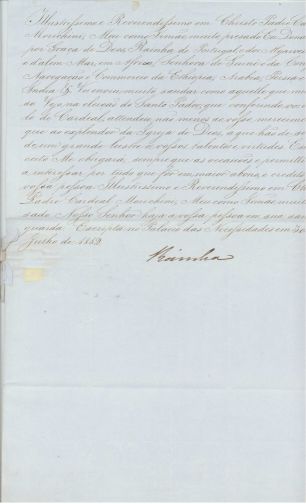 Illustrissimo e Reverendissimo em Christo Padre Car
Morichini, Meu como Irmão muito presado Eu Dona
por Graça de Deos, Rainha de Portugal e dos Algarves
e d'alem Mar, em Africa, Senhora de Guiné e da Con
Navegação e Commercio da Ethiopia, Arabia, Persia e
India &. Vos envio muito saudar como aquelle que mu
Vejo na elevação do Santo Padre, que conferindo-vos
lo de Cardeal, attendeu não menos ao vosso merecimen
que ao esplendor da Igreja de Deos, a que hão de
de um grande lustre o vosso talento e virtudes Es
Me obrigará, sempre que as occasiões o permitt
a interessar por tudo que for em maior abono, e credito
vossa pessoa Illustrissimo e Reverendissimo em C
Padre Cardeal Morichini, Meu como Irmão muit
sado Nosso Senhor haja a vossa pessoa em sua
guarda Escripta no Palacio das Necessidades em 30
Julho de 1852.
Rainha